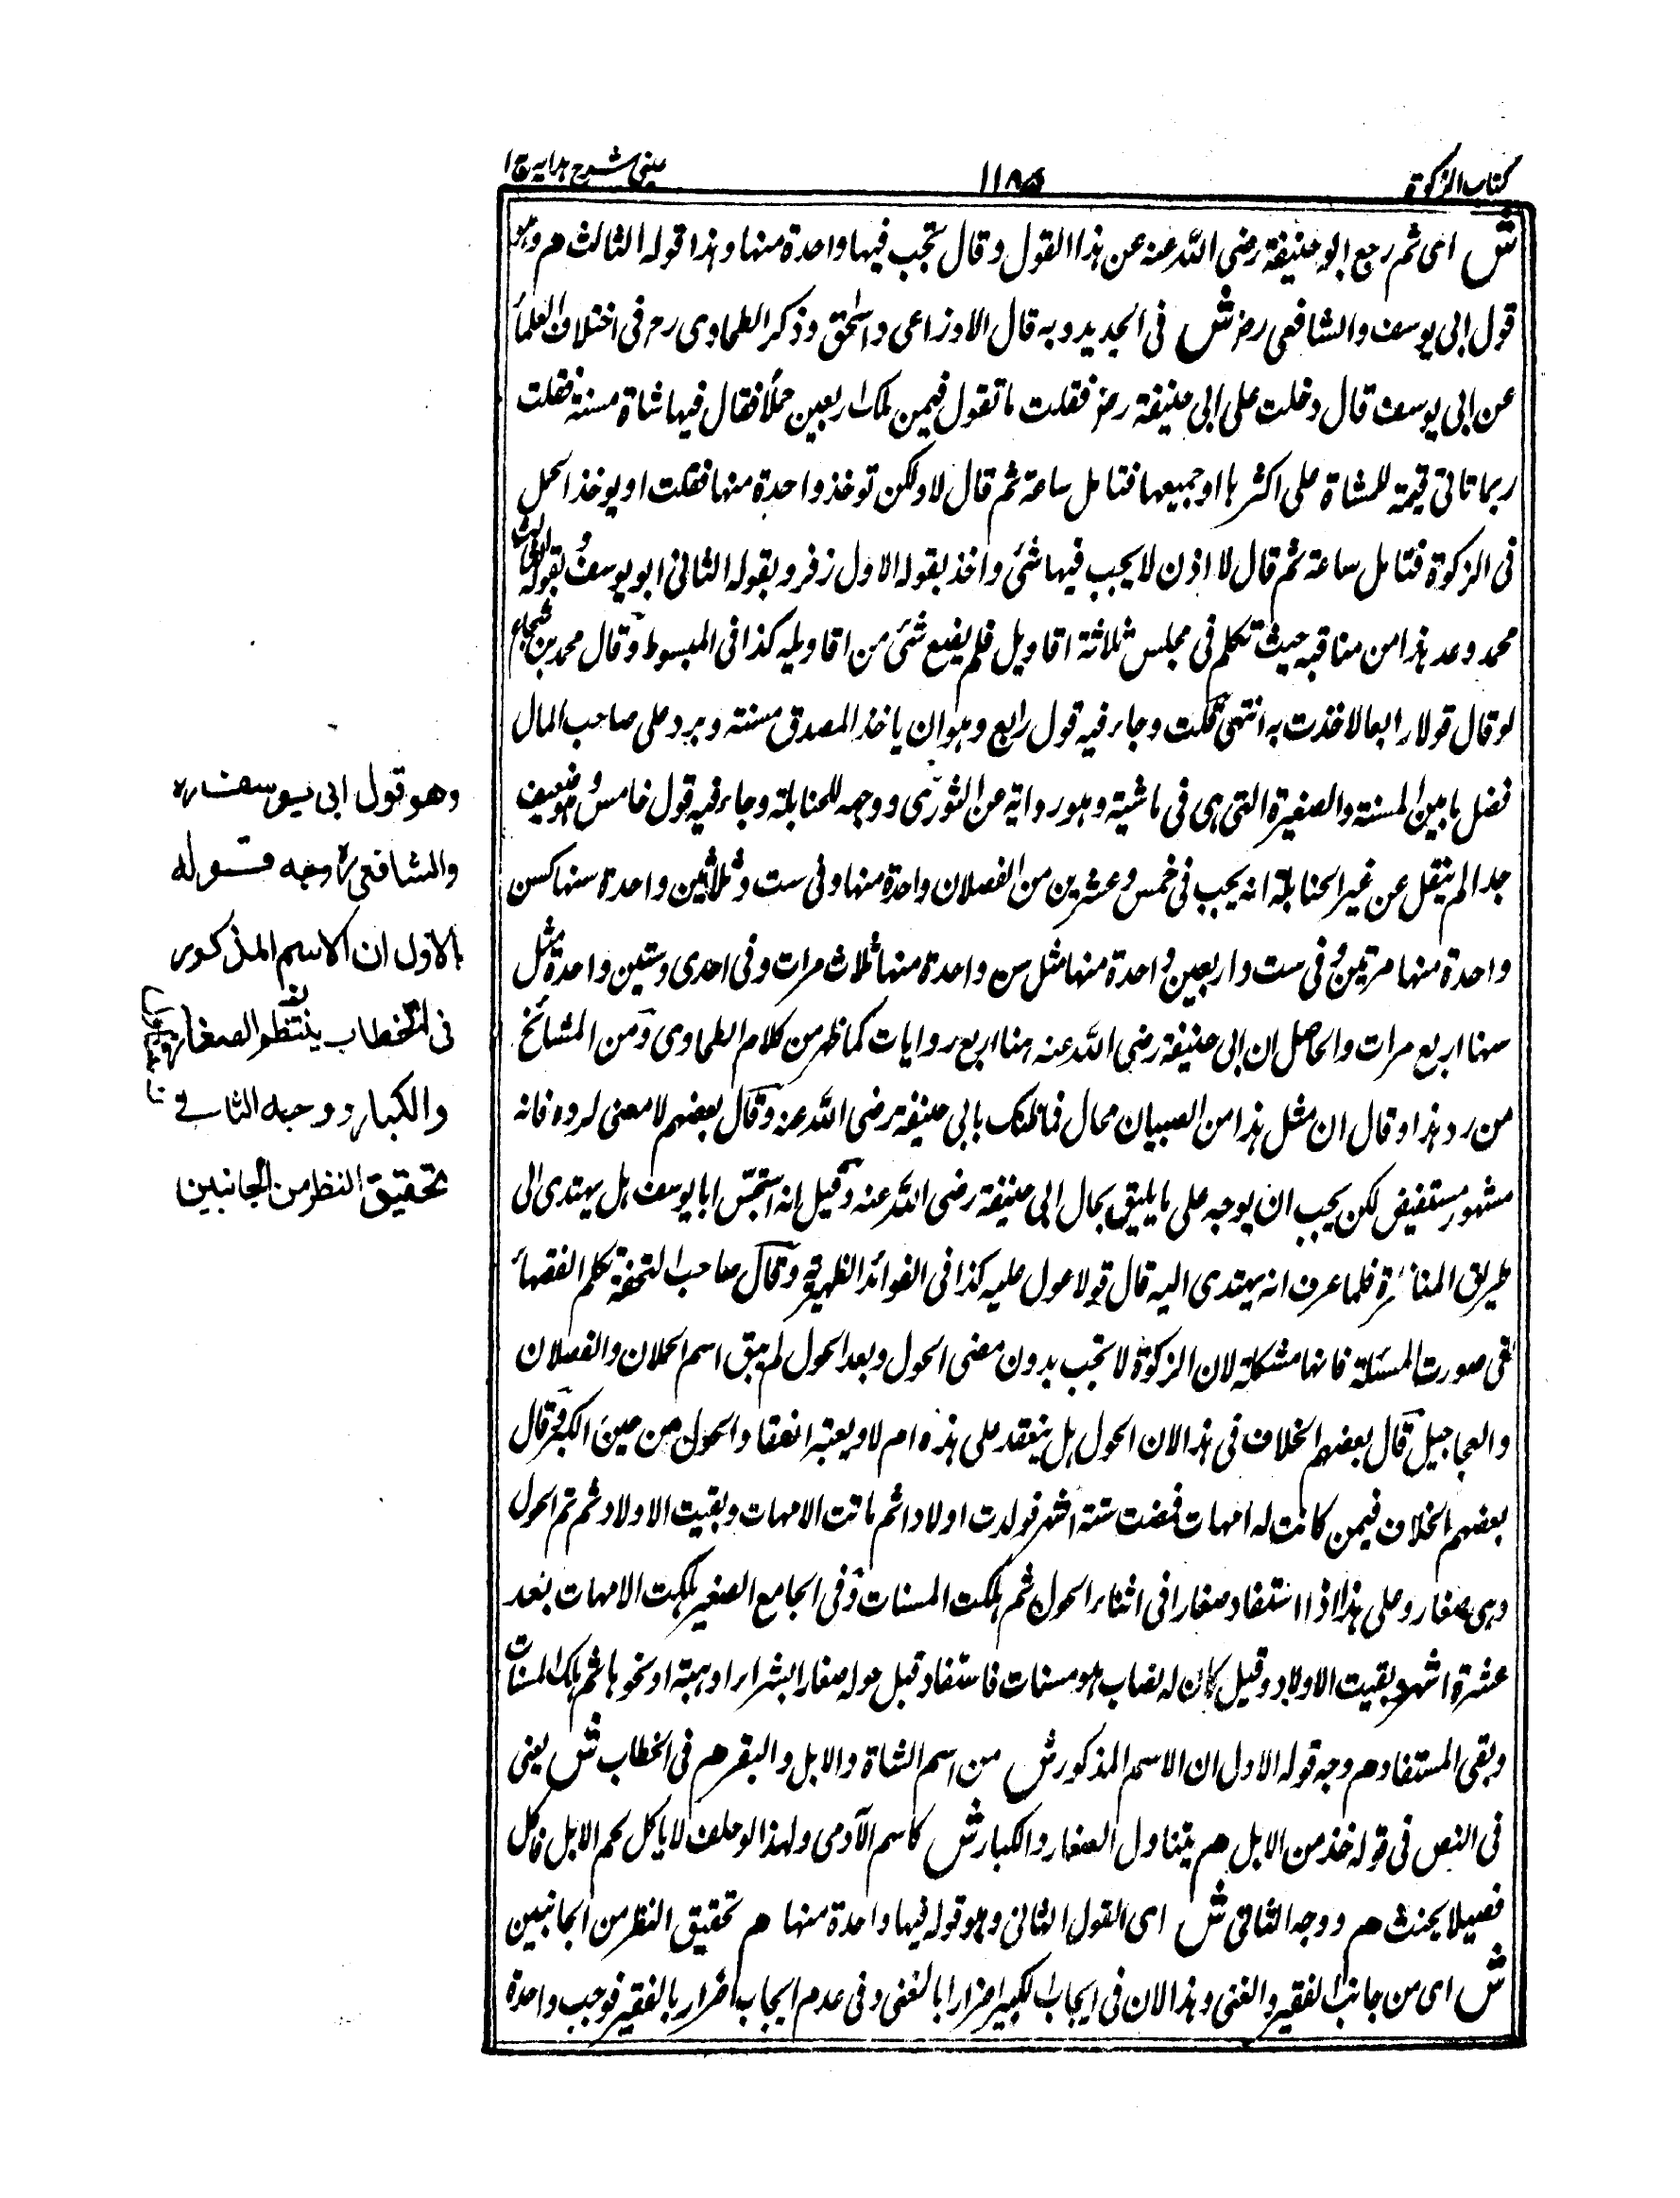 كتاب الزكوة
١١٨٥
عينى شرح هدايه ج ا
ش اى ثم رجع ابو حنيفة رضى الله عنه عن هذا القول وقال تجب فيها واحدة منها وهذا قوله الثالث هم وهو
قول ابى يوسف والشافعى رح ش فى الجديد وبه قال الاوزاعى واسحق وذكر الطحاوى رح فى اختلاف العلمأ
عن ابى يوسف قال دخلت على ابى حنيفة رض فقلت ما تقول فيمن ملك اربعين حملا فقال فيها شاة مسنة فقلت
ربما تاتى قيمة للشاة على اكثرها او جميعها فتامل ساعة ثم قال لا ولكن توخذ واحدة منها فقلت او يوخذ الحمل
فى الزكوة فتامل ساعة ثم قال لا اذن لا يجب فيها شئ واخذ بقوله الاول زفر وبقوله الثانى ابو يوسف وبقوله الثالث
محمد وعد هذا من مناقبه حيث تكلم فى مجلس ثلاثة اقاويل فلم يضع شئ من اقاويله كذا فى المبسوط وقال محمد بن شجاع
لو قال قولا رابعا لاخذت به انتهى قلت وجاء فيه قول رابع وهو ان ياخذ المصدق مسنته ويرد على صاحب المال
فضل ما بين المسنة والصغيرة التى هى فى ماشيته وهو رواية عن الثورى ووجه للحنابلة وجاء فيه قول خامس وهو ضعيف
جدا لم ينقل عن غير الحنابلة انه يجب فى خمس وعشرين من الفصلان واحدة منها وفى ست وثلاثين واحدة سنها كسن
واحدة منها مرتين وفى ست واربعين واحدة منها مثل سن واحدة منها ثلاث مرات وفى احدى وستين واحدة مثل
سنها اربع مرات والحاصل ان ابى حنيفة رضى الله عنه هنا اربع روايات كما ظهر من كلام الطحاوى ومن المشائخ
من رد هذا وقال ان مثل هذا من الصبيان محال فما ظنك بابى حنيفة رضى الله عنه وقال بعضهم لا معنى لرده فانه
مشهور مستفيض لكن يجب ان يوجه على ما يليق بحال ابى حنيفة رضى الله عنه وقيل انه امتحن ابا يوسف هل يهتدى الى
طريق المناظرة فلما عرف انه يهتدى اليه قال قولا عول عليه كذا فى الفوائد الظهيرية وقال صاحب التحفة تكلم الفقهأ
فى صورت المسئلة فانها مشكلة لان الزكوة لا تجب بدون مضى الحول وبعد الحول لم يبق اسم الحملان والفصلان
والعجاجيل قال بعضهم الخلاف فى هذا لان الحول هل ينعقد على هذه ام لا ويعتبر انعقاد الحول من حين الكبر وقال
بعضهم الخلاف فيمن كانت له امهات فمضت ستة اشهر فولدت اولادا ثم ماتت الامهات وبقيت الاولاد ثم تم الحول
وهى صغار وعلى هذا اذا استفاد صغارا فى اثناء الحول ثم هلكت المسنات وفى الجامع الصغير هلكت الامهات بعد
عشرة اشهر وبقيت الاولاد وقيل كان له نصاب هو مسنات فاستفاد قبل حوله صغارا بشراء او هبة او نحوها ثم هلك المسنات
وبقى المستفاد هم وجه قوله الاول ان الاسم المذكور ش من اسم الشاة والابل والبقر هم فى الخطاب ش يعنى
فى النص فى قوله خذ من الابل هم يتناول الصغار والكبار ش كاسم الآدمى ولهذا لو حلف لا ياكل لحم الابل فاكل
فصيلا يحنث هم ووجه الثانى ش اى القول الثانى وهو قوله فيها واحدة منها هم تحقيق النظر من الجانبين
ش اى من جانب الفقير والغنى وهذا لان فى ايجاب الكبير اضرارا بالغنى وفى عدم ايجاب اضرار بالفقير فوجب واحدة
وهو قول ابى يوسف رہ
والشافعى رہ وجه قوله
الاول ان الاسم المذكور
فى الخطاب ينتظم الصغار
والكبار ووجه الثانى
تحقيق النظر من الجانبين